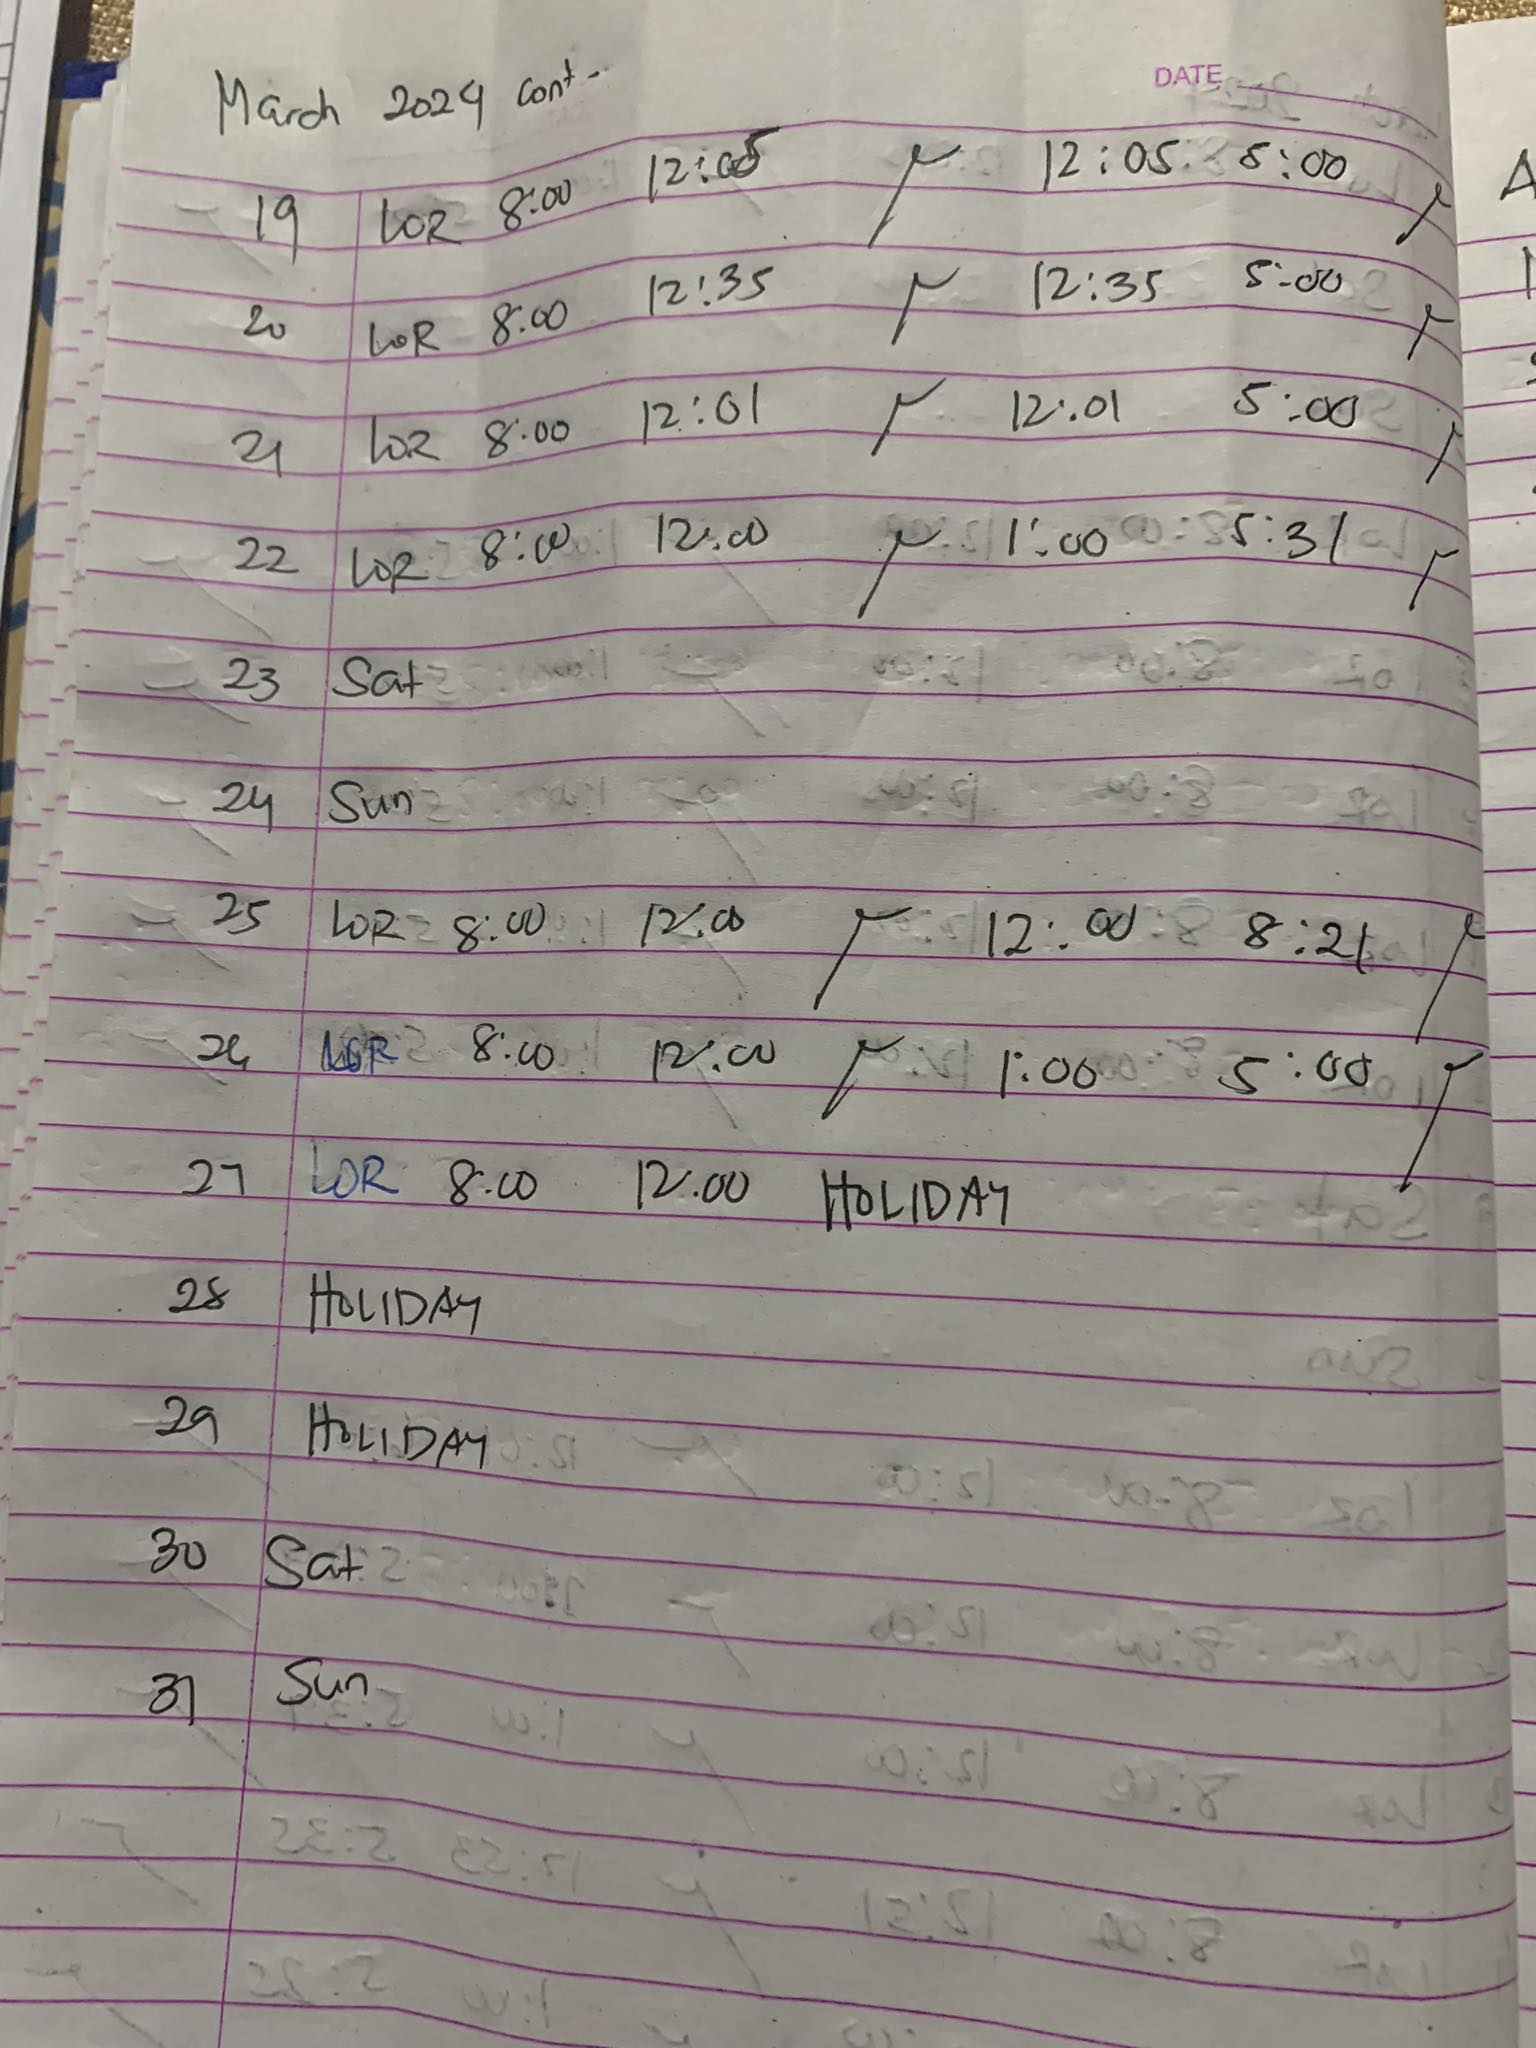 March 2024 cont--
DATE
19 LOR 8:00 12:05 12:05 5:00
20 LOR 8:00 12:35 12:35 5:00
21 LOR 8:00 12:01 12:01 5:00
22 LOR 8:00 12:00 1:00 5:31
23 Sat
24 Sun
25 LOR 8:00 12:00 12:00 8:21
26 LOR 8:00 12:00 1:00 5:00
27 LOR 8:00 12:00 HOLIDAY
28 HOLIDAY
29 HOLIDAY
30 Sat
31 Sun